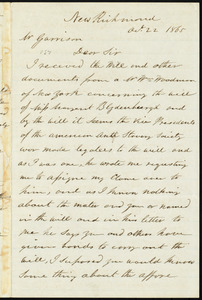 New Richmond
Oct. 22 1865
Mr Garrison
Dear Sir
I received the Will and other
documents from a Mr Woodman
of New York concerning the will
of Miss Margret Clydenburgh and
by the will it seems the Vice Presidents
of the american Anti Slavery Society
wer made legaters to the will and
as I was one he wrote me requesting
me to assigne my Clame over to
him, and as I know nothing
about the mater and you or named
in the will and in his letter to
me he says you and others have
given bonds to carry out the
will, I suposed you would know
Some thing about the affare